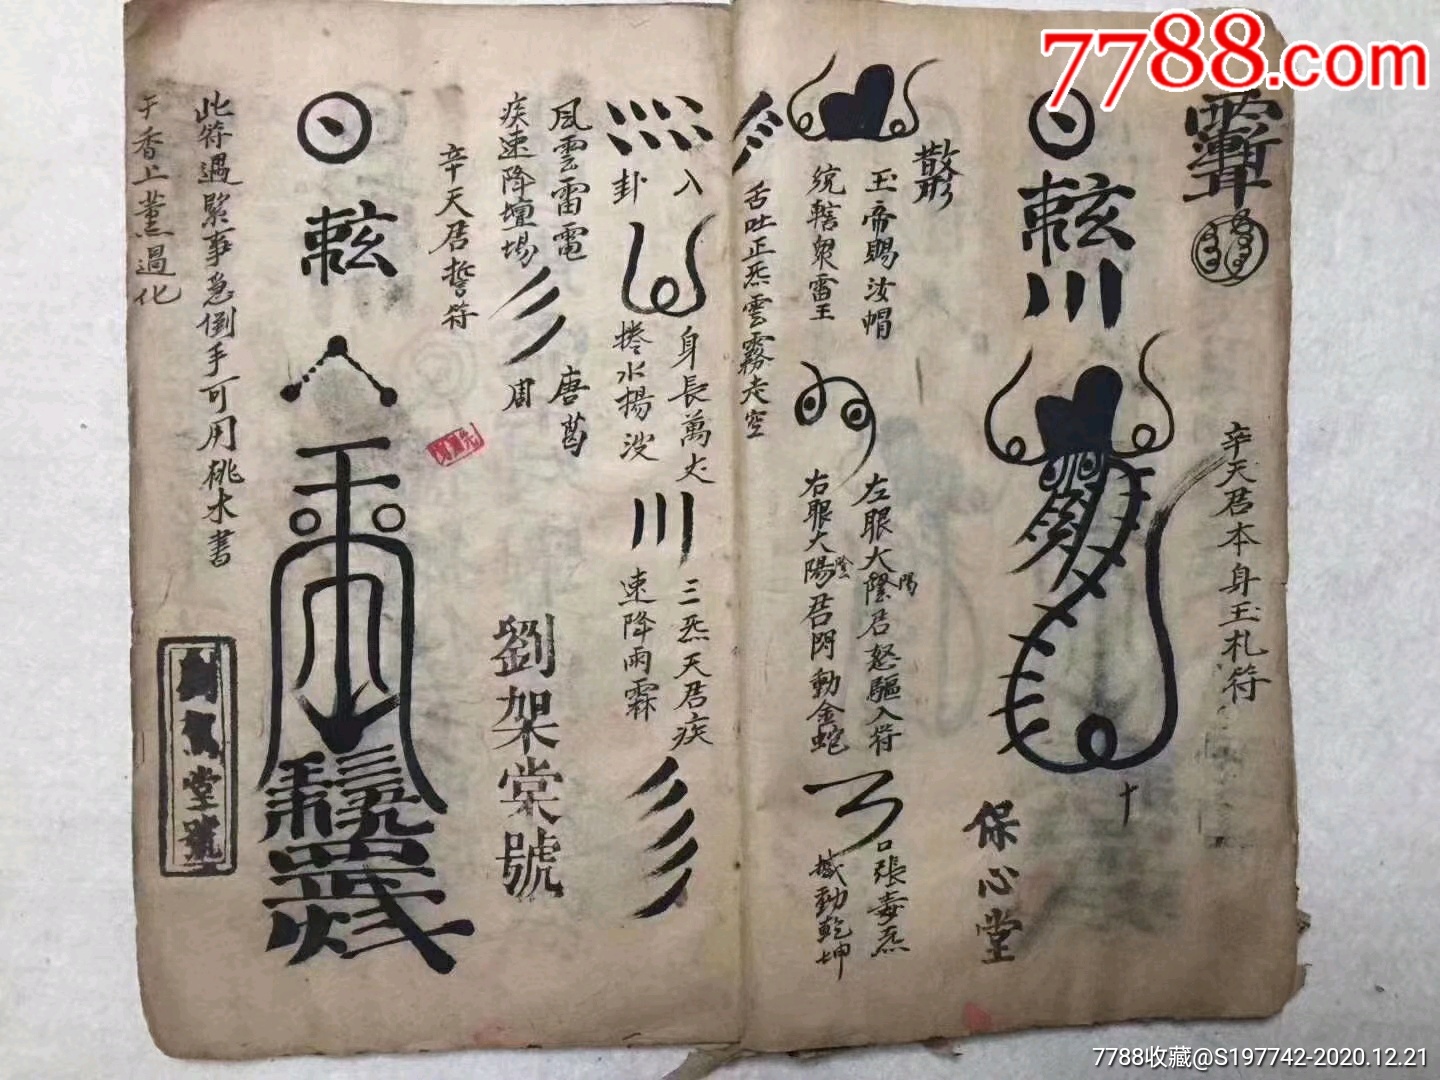 7788.com
辛天君本身玉札符
十
保心堂
散形
玉帝賜汝帽
統轄眾雷王
左眼太陰君怒驅入符
陽
右眼太陽君閃動金蛇
陰
口張毒炁
撼動乾坤
舌吐正炁雲霧走空
入
卦
身長萬丈
捲水揚波
三炁天君疾
速降雨霖
風雲雷電
疾速降壇場
唐葛
周
辛天君誓符
劉架棠號
此符遇緊事急倒手可用桃木書
于香上薰過化
堂號
7788收藏@S197742-2020.12.21